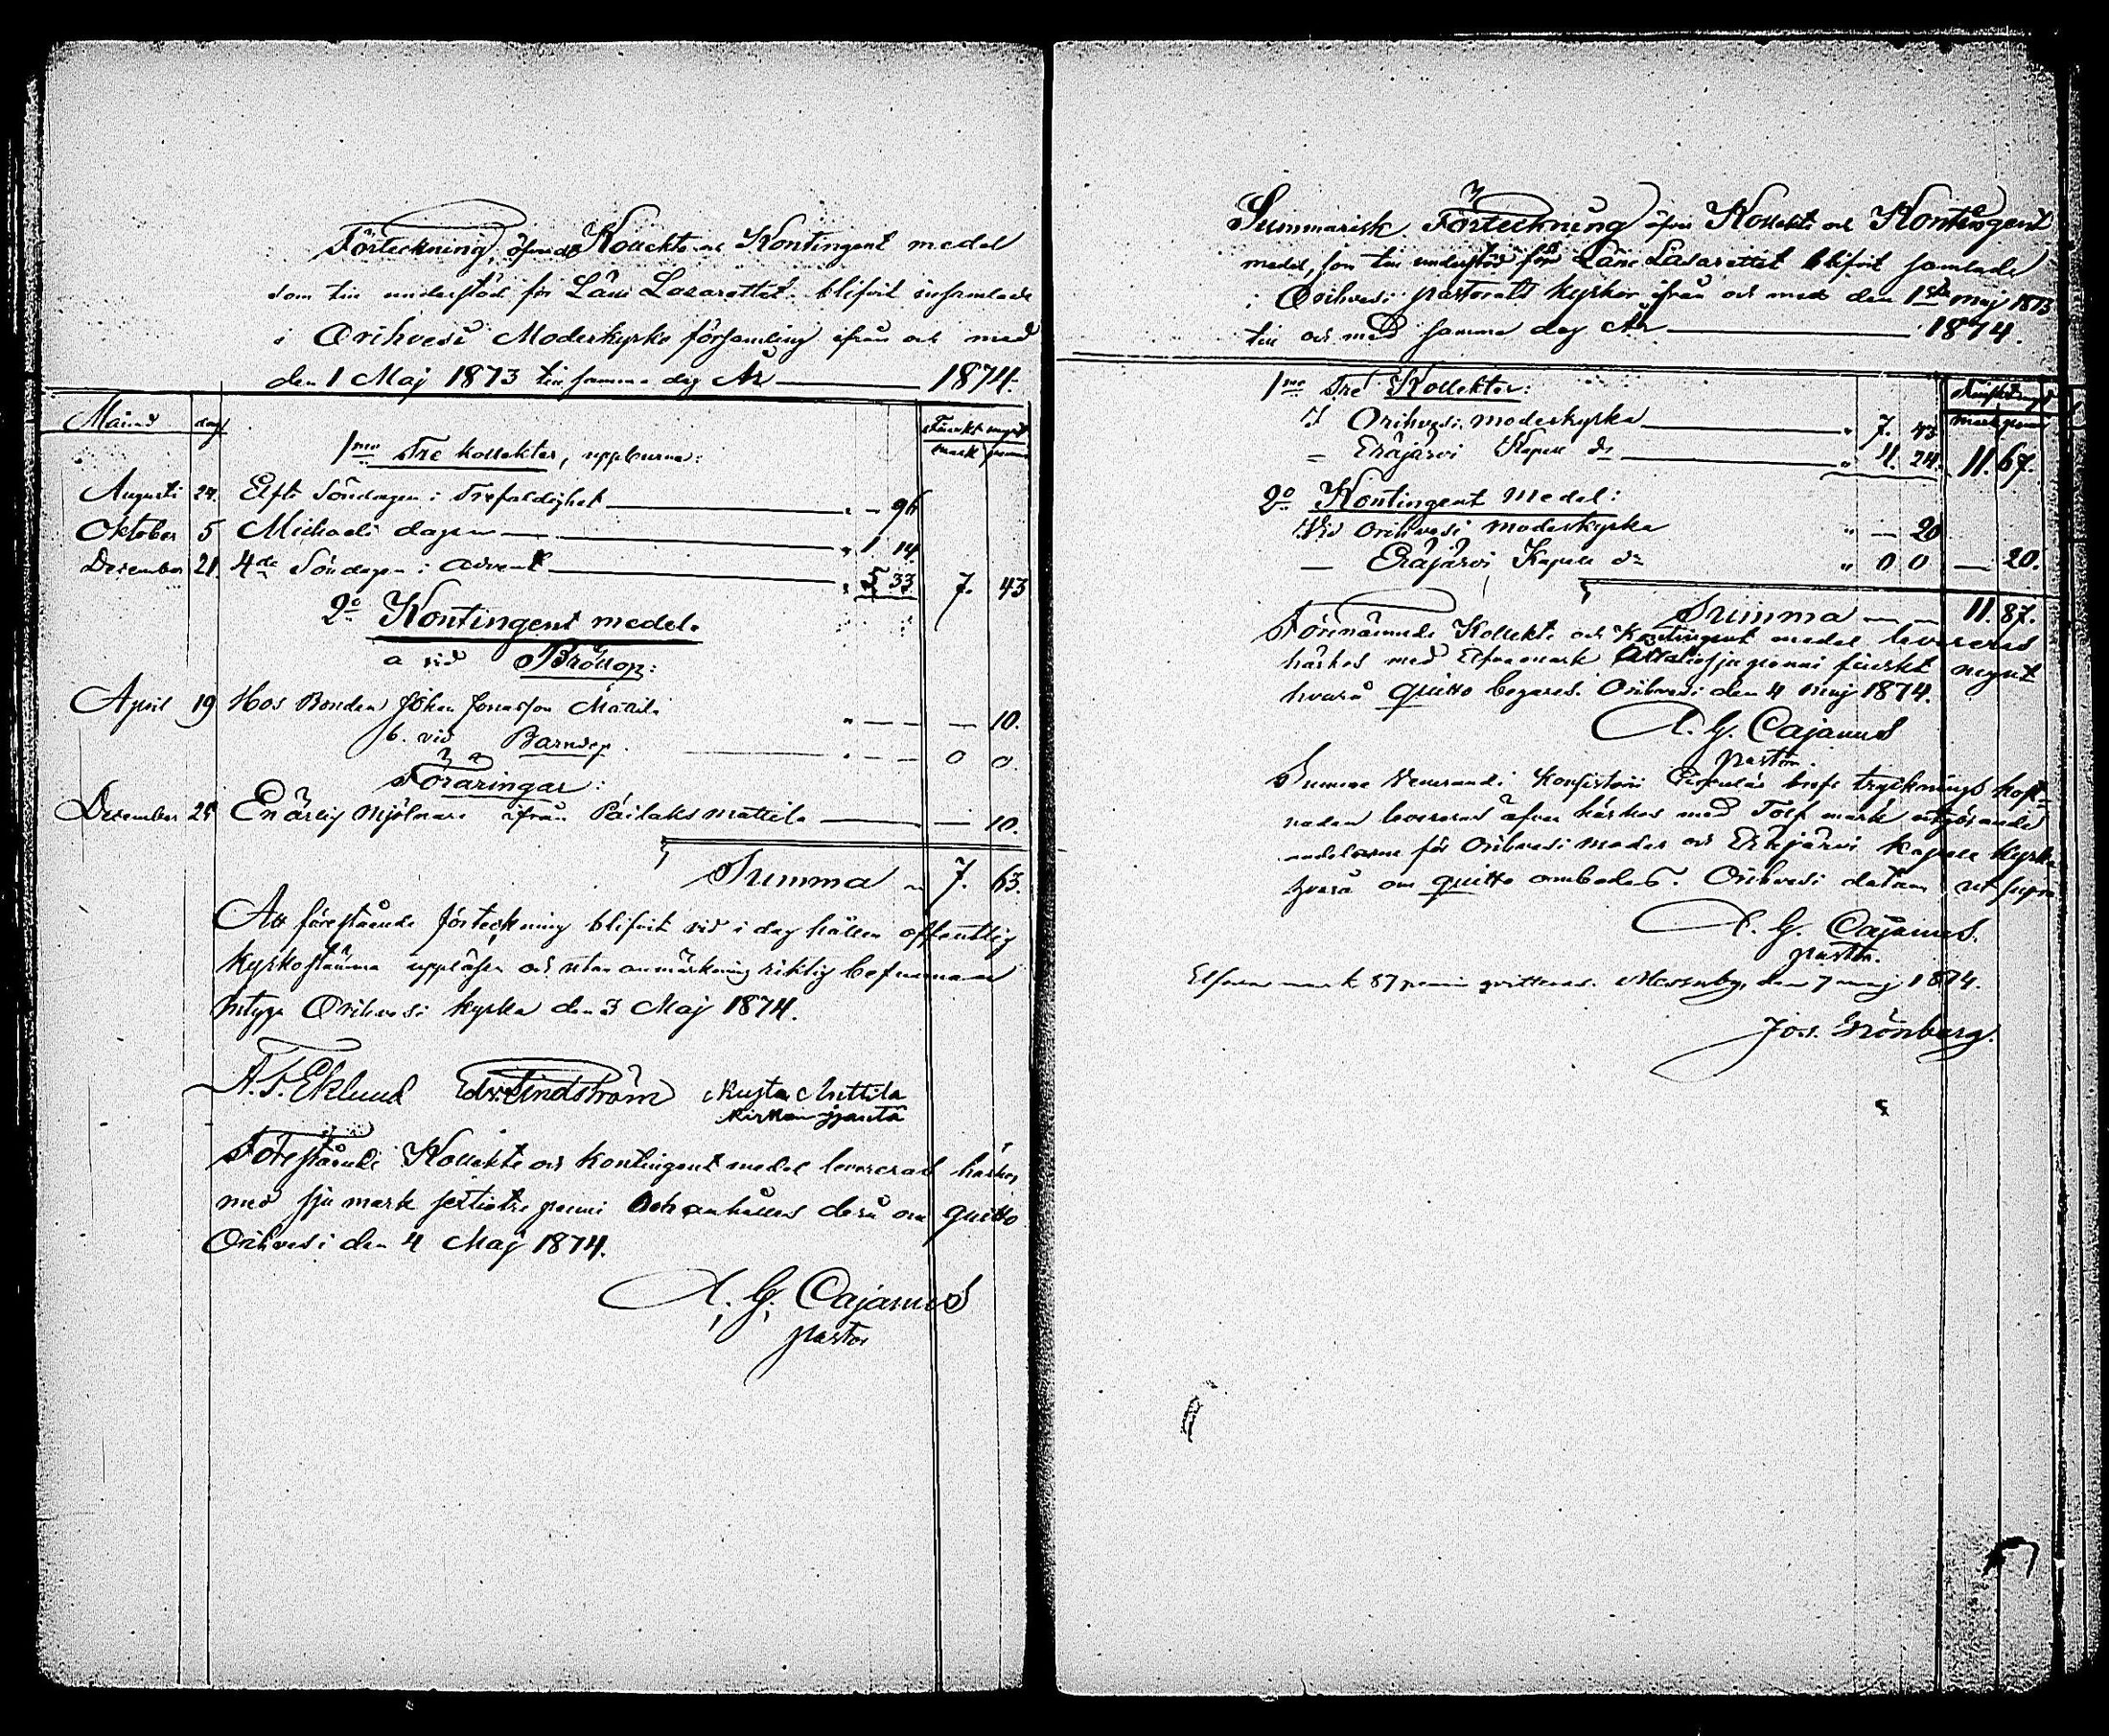 Förteckning, öfver de Kollekts och Kontingent medel
som till understöd för Läns Lazarettet blifvit insamlade
i Orihvesi Moderkyrko församling ifrån och med
den 1 Maj 1873 till samma dag År — 1874.
Månad dag
Finskt mynt
mark penni
1mo Tre kollekter, uppburne:
Augusti 24. Elfte Söndagen i Trefaldighet — " — 96
Oktober 5 Michaeli dagen — " 1. 14
December 21. 4de Söndagen i Advent — " 5 33 7. 43
2o Kontingent medel.
a vid Bröllop:
April 19 Hos Bonden Johan Jonasson — " — — 10.
b. vid Barndop. — " — — 0 0.
Föräringar:
December 25 En ärlig Mjölnare ifrån Päilaks Mattila — — 10.
Summa " 7. 63.
Att förestående förteckning blifvit vid i dag hållen offentlig
kyrkostämma uppläsen och utan anmärkning riktig befunnen
intyga Orihvesi kyrka den 3 Maj 1874.
A. F. Eklund Edv. Lindström Kusta Anttila
Kirkon isäntä
Förestående Kollekts och Kontingent medel levereras härhos
med sju mark sextiotre penni och anhålles derå om quitto
Orihvesi den 4 Maj 1874.
A. G. Cajanus
pastor
Summarisk Förteckning öfver Kollekts och Kontingent
medel, som till understöd för Läns Lasarettet blifvit samlade
i Orihvesi pastorats kyrkor ifrån och med den 1sta maj 1873
till och med samma dag År — 1874.
Finskt mynt
mark penni
1mo Tre Kollekter:
Orihvesi moderkyrka — " 7. 43
= Eräjärvi Kapell do — " 4. 24. 11. 67.
2o Kontingent Medel:
Vid Orihvesi moderkyrka " — 20
— Eräjärvi Kapell do " 0 0 — 20.
Summa — — 11. 87.
Förenämnde Kollekts och Kontingent medel levereras
härhos med Elfva mark åttatiosju penni finskt mynt
hvarå quitto begäres. Orihvesi den 4 maj 1874.
A. G. Cajanus
pastor.
Summa Venerandi Konsistorii Cirkulär brefs trycknings kost=
naden levereras äfven härhos med Tolf mark utgörande
andelarne för Orihvesi moder och Eräjärvi kapell kyrka
hvarå om quitto ombedes. Orihvesi datum ut supra
A. G. Cajanus.
pastor.
Elfva mark 87 penni qvitteras. Messuby, den 7 maj 1874.
Jos. Grönberg.